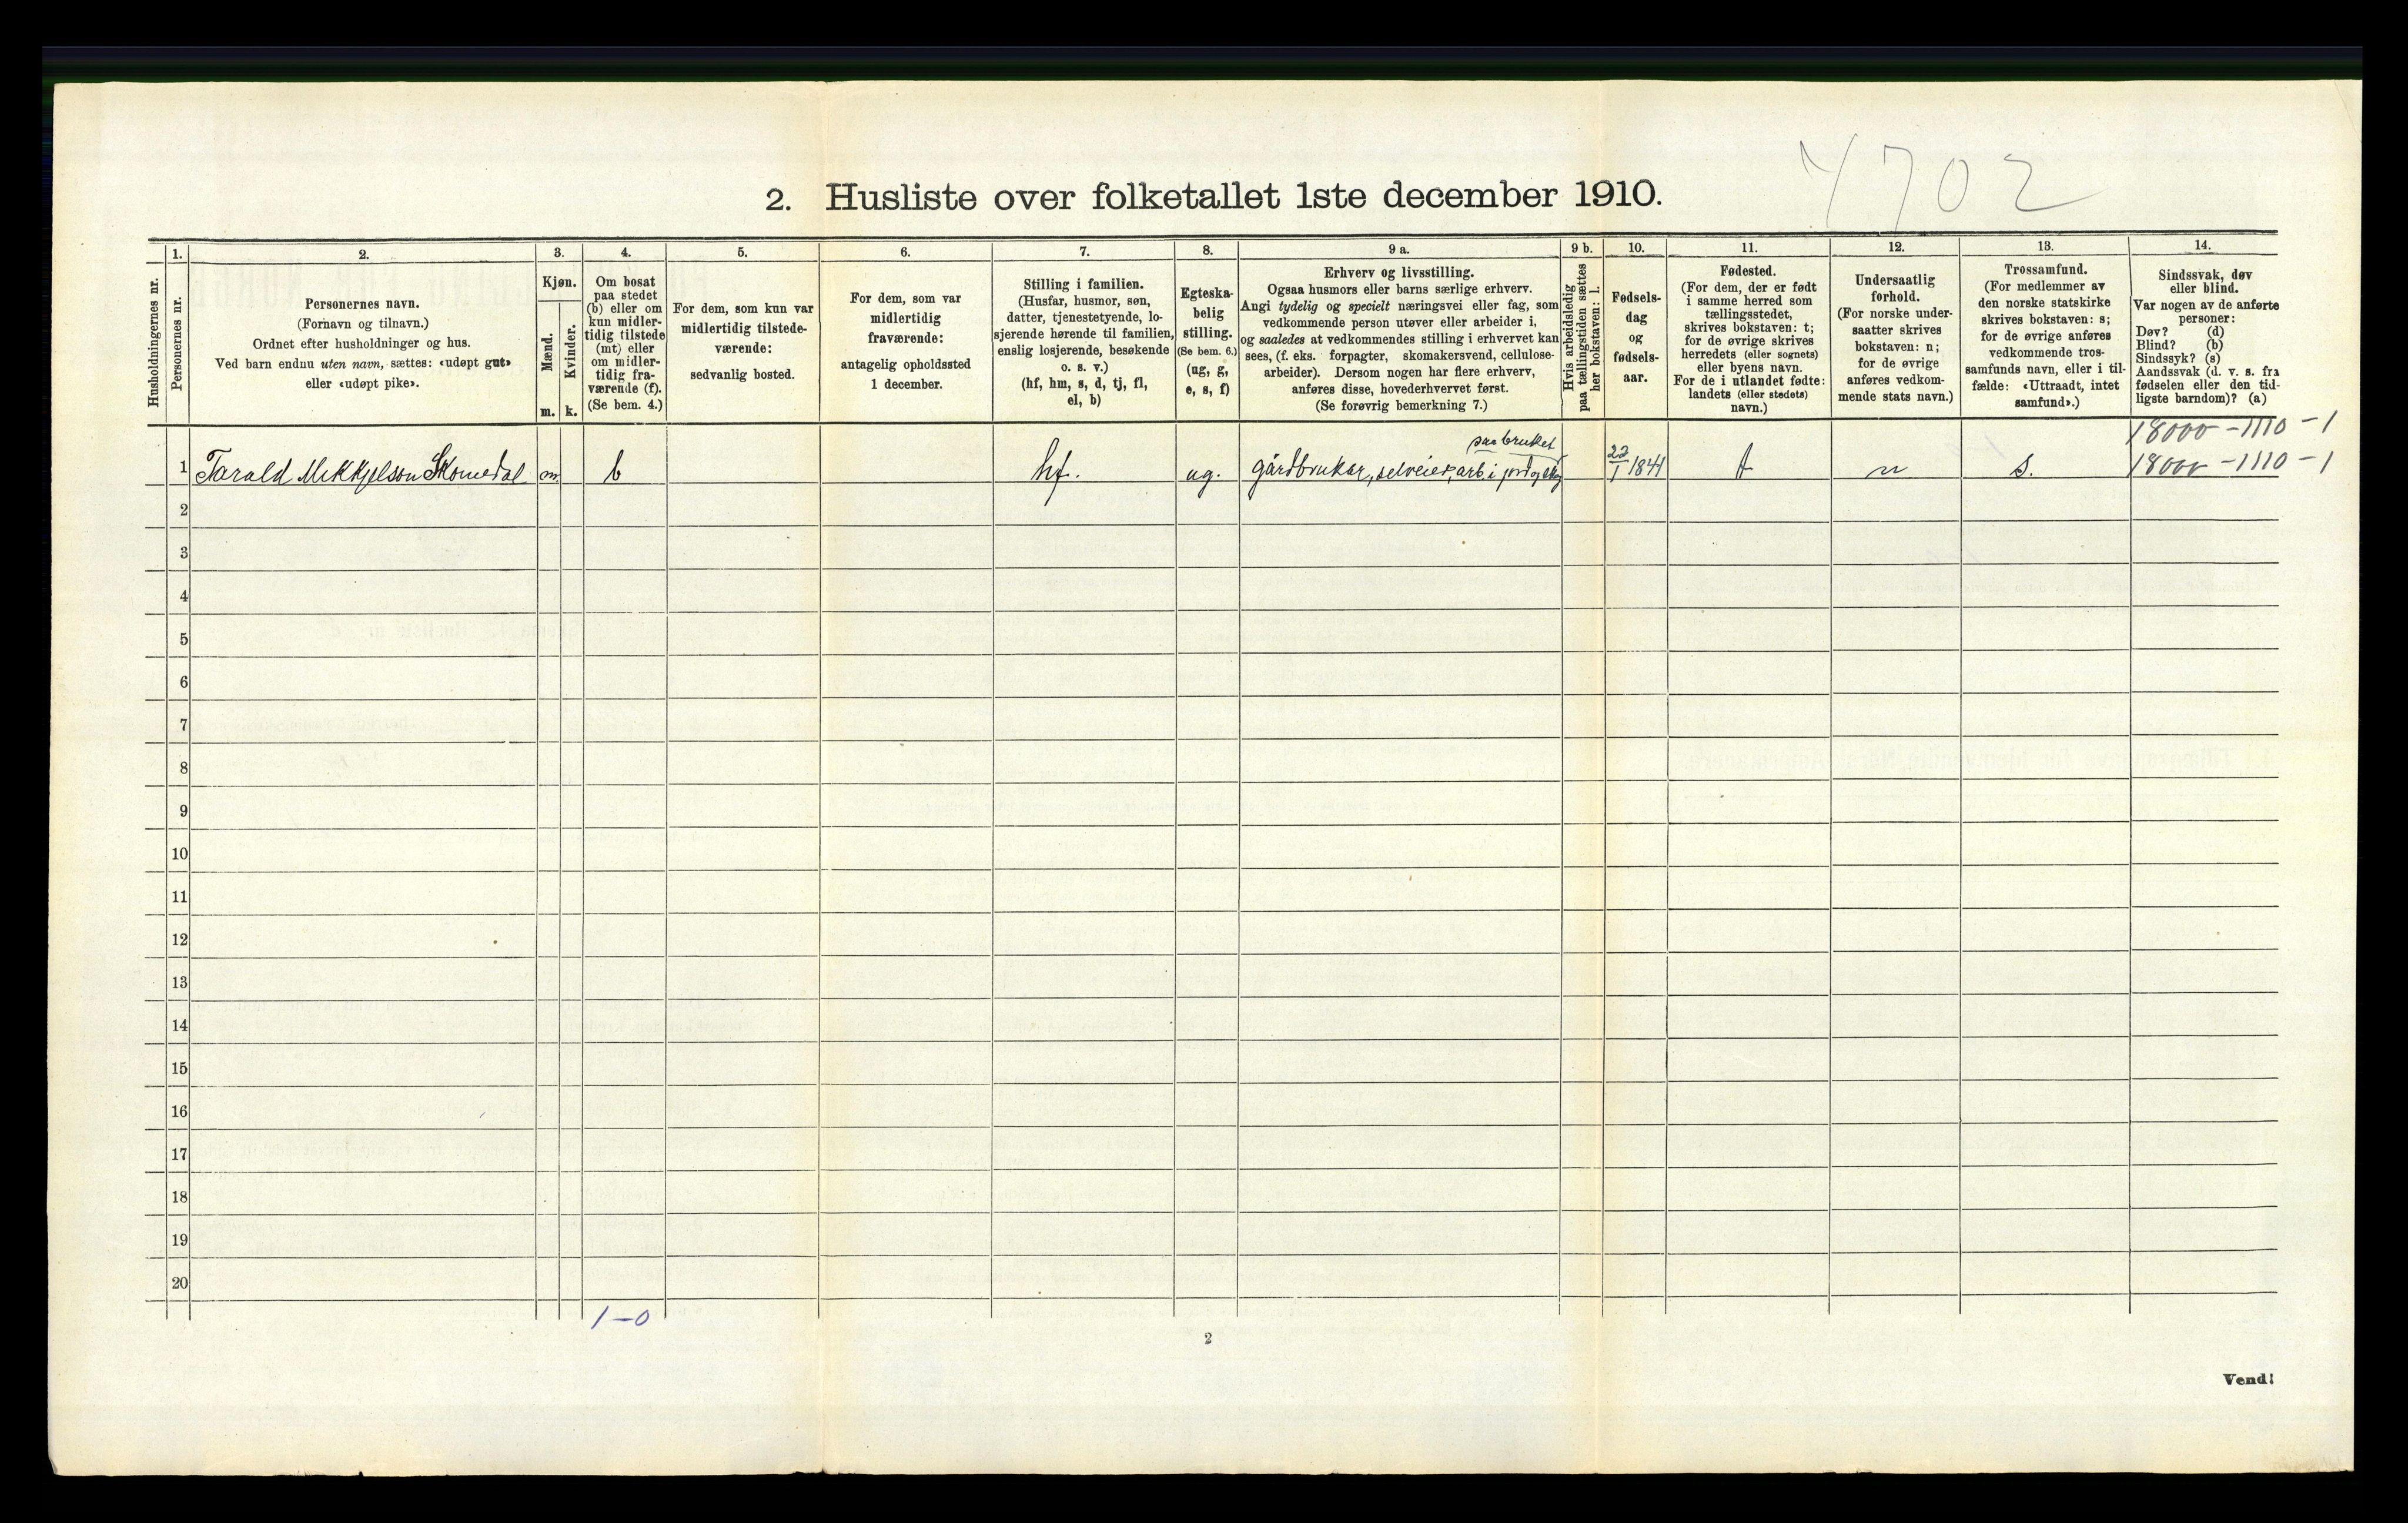 4702
2. Husliste over folketallet 1ste december 1910.
Husholdningernes nr.
1.
Personernes nr.
2.
Personernes navn.
(Fornavn og tilnavn.)
Ordnet efter husholdninger og hus.
Ved barn endnu uten navn, sættes: «udøpt gut»
eller «udøpt pike».
3.
Kjøn.
Mænd.
m.
Kvinder.
k.
4.
Om bosat
paa stedet
(b) eller om
kun midler-
tidig tilstede
(mt) eller
om midler-
tidig fra-
værende (f).
(Se bem. 4.)
5.
For dem, som kun var
midlertidig tilstede-
værende:
sedvanlig bosted.
6.
For dem, som var
midlertidig
fraværende:
antagelig opholdssted
1 december.
7.
Stilling i familien.
(Husfar, husmor, søn,
datter, tjenestetyende, lo-
sjerende hørende til familien,
enslig losjerende, besøkende
o. s. v.)
(hf, hm, s, d, tj, fl,
el, b)
8.
Egteska-
belig
stilling.
(Se bem. 6.)
(ug, g,
e, s, f)
9 a.
Erhverv og livsstilling.
Ogsaa husmors eller barns særlige erhverv.
Angi tydelig og specielt næringsvei eller fag, som
vedkommende person utøver eller arbeider i,
og saaledes at vedkommendes stilling i erhvervet kan
sees, (f. eks. forpagter, skomakersvend, cellulose-
arbeider). Dersom nogen har flere erhverv,
anføres disse, hovederhvervet først.
(Se forøvrig bemerkning 7.)
9 b.
Hvis arbeidsledig
paa tællingstiden sættes
her bokstaven: l.
10.
Fødsels-
dag
og
fødsels-
aar.
11.
Fødested.
(For dem, der er født
i samme herred som
tællingsstedet,
skrives bokstaven: t;
for de øvrige skrives
herredets (eller sognets)
eller byens navn.
For de i utlandet fødte:
landets (eller stedets)
navn.)
12.
Undersaatlig
forhold.
(For norske under-
saatter skrives
bokstaven: n;
for de øvrige
anføres vedkom-
mende stats navn.)
13.
Trossamfund.
(For medlemmer av
den norske statskirke
skrives bokstaven: s;
for de øvrige anføres
vedkommende tros-
samfunds navn, eller i til-
fælde: «Uttraadt, intet
samfund».)
14.
Sindssvak, døv
eller blind.
Var nogen av de anførte
personer:
Døv? (d)
Blind? (b)
Sindssyk? (s)
Aandssvak (d. v. s. fra
fødselen eller den tid-
ligste barndom)? (a)
18000 - 1110 - 1
paa bruket
1 Tarald Mikkjelson Skomedal m. b hf. ug. gårdbruker, selveier, arb. i jord og skog 22/1 1841 t n s. 18000 - 1110 - 1
2
3
4
5
6
7
8
9
10
11
12
13
14
15
16
17
18
19
20
1-0
2
Vend!